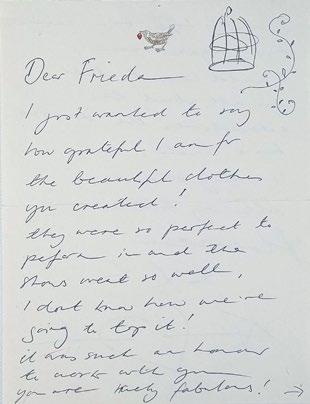 Dear Frieda
I just wanted to say
how grateful I am for
the beautiful clothes
you created!
they were so perfect to
perform in and the
shows went so well,
I dont know how we're
going to top it!
it was such an honour
to work with you
you are truly fabulous! →